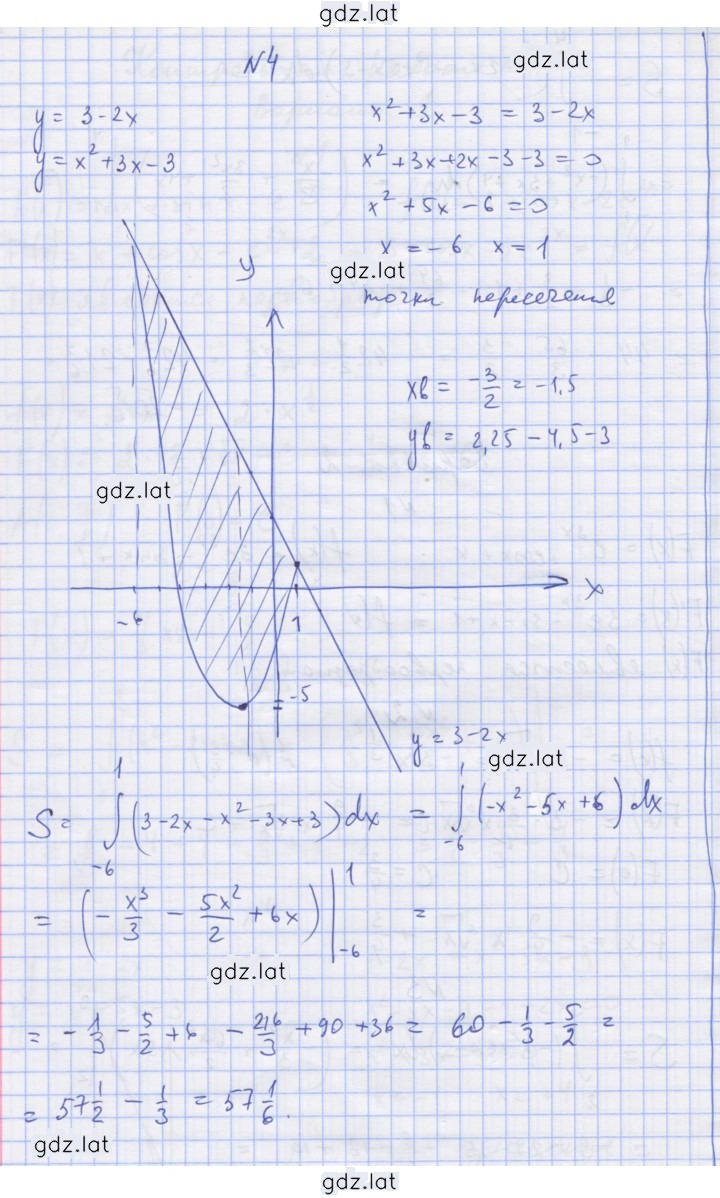 gdz.lat
N4
gdz.lat
y = 3-2x
y = x²+3x-3
x²+3x-3 = 3-2x
x²+3x+2x-3-3=0
x²+5x-6=0
x=-6 x=1
gdz.lat
точки пересечения
y
xв = -3/2 = -1,5
yв = 2,25-4,5-3
gdz.lat
x
-6
1
-5
y = 3-2x
gdz.lat
S = ∫₋₆¹ (3-2x-x²-3x+3)dx = ∫₋₆¹ (-x²-5x+6)dx
= (-x³/3 - 5x²/2 + 6x) |₋₆¹ =
gdz.lat
= -1/3 - 5/2 + 6 - 216/3 + 90 + 36 = 60 - 1/3 - 5/2 =
= 57 1/2 - 1/3 = 57 1/6.
gdz.lat
gdz.lat